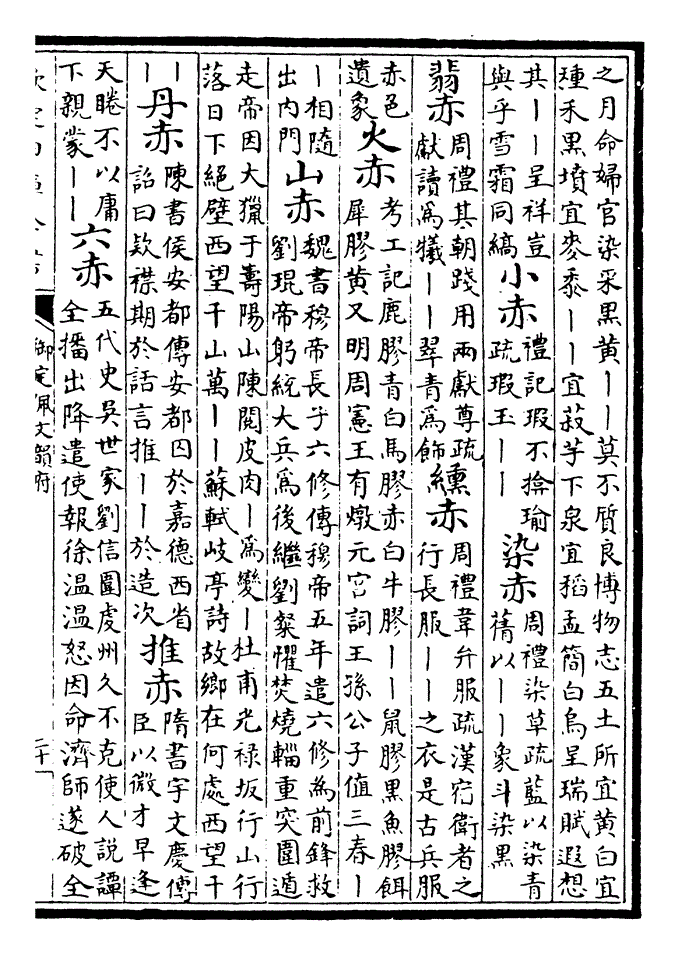 之月命婦官染采黑黃丨丨莫不質良博物志五土所宜黃白宜
種禾黑墳宜麥黍丨丨宜菽芋下泉宜稻孟簡白烏呈瑞賦遐想
其丨丨呈祥豈
與乎雪霜同縞
小赤
禮記瑕不揜瑜
疏瑕玉丨丨
染赤
周禮染草疏藍以染青
蒨以丨丨象斗染黑
翡赤
周禮其朝踐用兩獻尊疏
獻讀為犧丨丨翠青為飾
纁赤
周禮韋弁服疏漢宿衛者之
行長服丨丨之衣是古兵服
赤色
遺象
火赤
考工記鹿膠青白馬膠赤白牛膠丨丨鼠膠黑魚膠餌
犀膠黃又明周憲王有燉元宮詞王孫公子值三春丨
丨相隨
出内門
山赤
魏書穆帝長子六修傳穆帝五年遣六修為前鋒救
劉琨帝躬統大兵為後繼劉粲懼焚燒輜重突圍遁
走帝因大獵于壽陽山陳閱皮肉丨為變丨杜甫光祿坂行山行
落日下絕壁西望千山萬丨丨蘇軾岐亭詩故鄉在何處西望千
丨
丨
丹赤
陳書侯安都傳安都囚於嘉德西省
詔曰欵襟期於話言推丨丨於造次
推赤
隋書宇文慶傳
臣以微才早逢
天睠不以庸
下親蒙丨丨
六赤
五代史吳世家劉信圍虔州久不克使人說譚
全播出降遣使報徐温温怒因命濟師遂破全
御定佩文韻府
二十